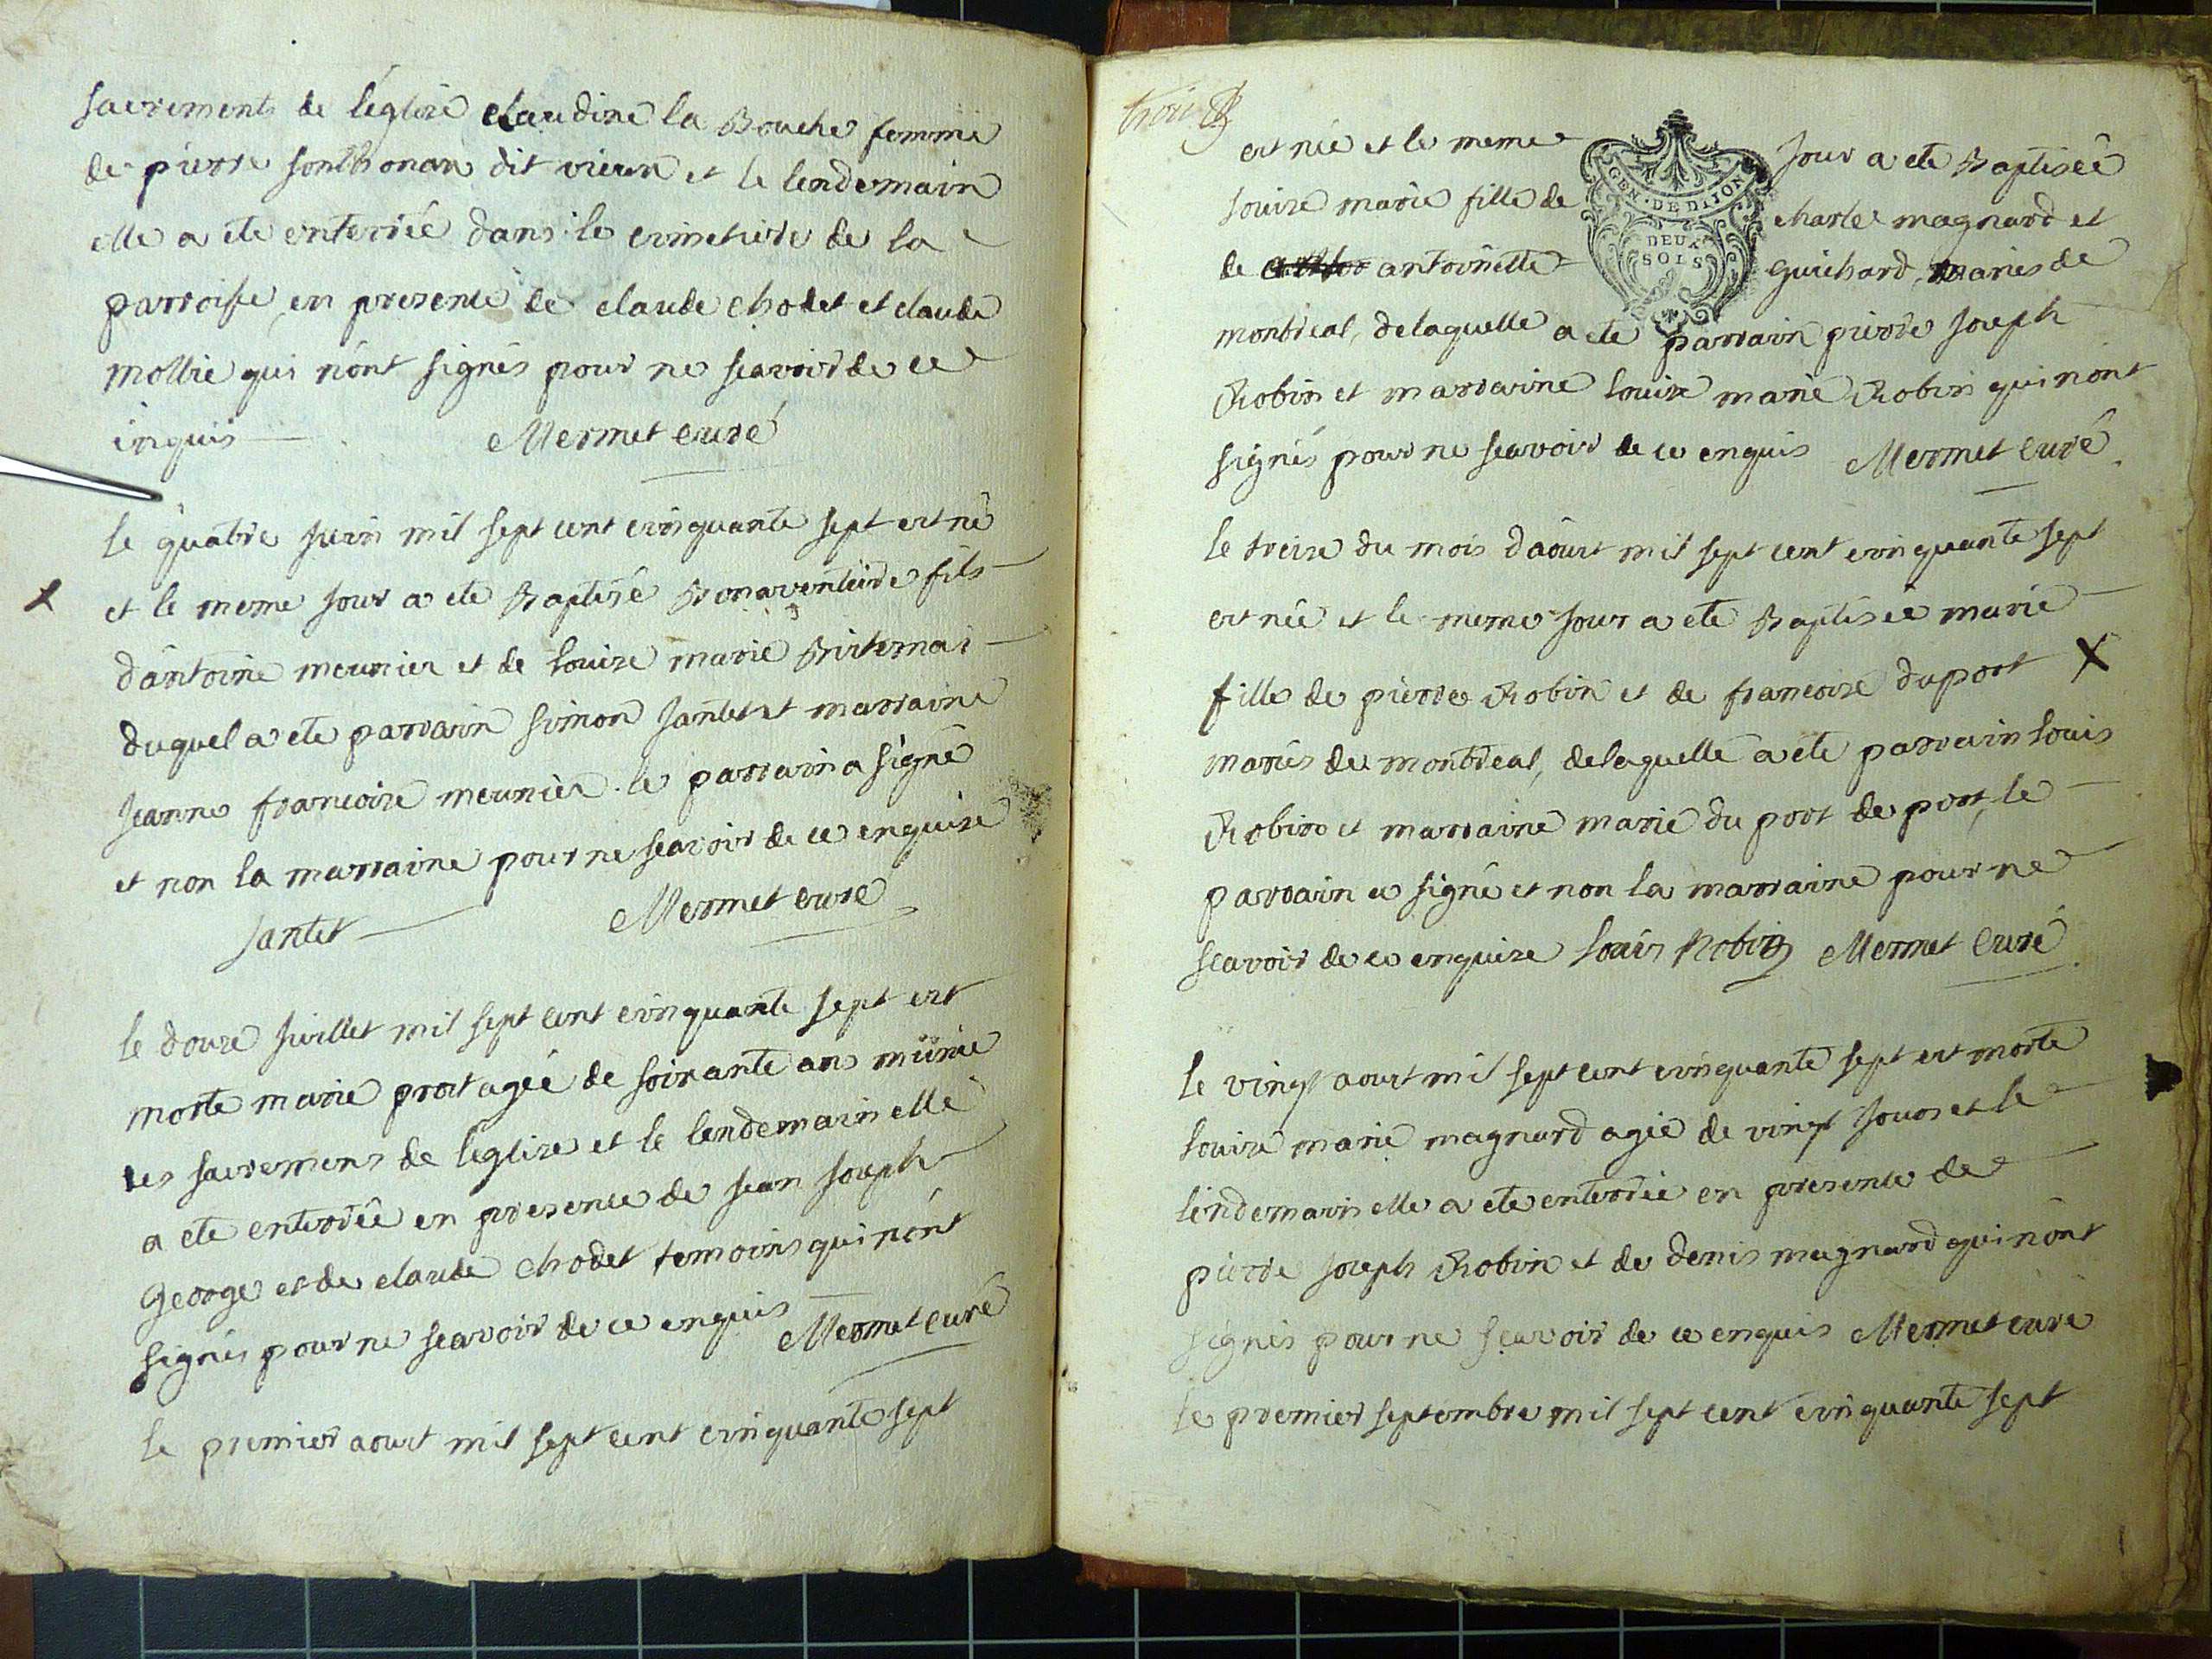 sacrements de léglise claudine la Bouche femme
de pierre sonthonan dit vieux et le lendemain
elle a ete enterrée dans le cimetiere de la
parroisse, en presence de claude chodet et claude
mollie qui nónt signés pour ne scavoir de ce
inquis Mermet curé
le quatre juin mil sept cent cinquante sept est né
et le meme jour a ete Baptisé Bonaventure fils
dántoine meunier et de louise marie
duquel a ete parrain simon jantet et marraine
jeanne francoise meunier. le parrain a signé
et non la marraine pour ne scavoir de ce enquise
jantet Mermet curé
le douze juillet mil sept cent cinquante sept est
morte marie prost agée de soixante ans munie
des sacremens de léglise et le lendemain elle
a ete enterrée en presence de jean joseph
george et de claude chodet temoins qui nónt
signés pour ne scavoir de ce enquis Mermet curé
le premier aoust mil sept cent cinquante sept
trois
est née et le meme jour a ete Baptisée
louise marie fille de charle magnard et
de antoinette guichard, mariés de
montreal, delaquelle a ete parrain pierre joseph
Robin et marraine louise marie Robin qui nónt
signés pour ne scavoir de ce enquis Mermet curé
GEN · DE DIJON
DEUX
SOLS
le treize du mois dáoust mil sept cent cinquante sept
est née et le meme jour a ete Baptisée marie
fille de pierre Robin et de francoise duport
mariés de montreal, delaquelle a ete parrain louis
Robin et marraine marie du port de port, le
parrain a signé et non la marraine pour ne
scavoir de ce enquise Louis Robin Mermet curé
le vingt aoust mil sept cent cinquante sept est morte
louise marie magnard agée de vingt jours et le
lendemain elle a ete enterrée en presence de
pierre joseph Robin et de denis magnard qui nónt
signés pour ne scavoir de ce enquis Mermet curé
le premier septembre mil sept cent cinquante sept